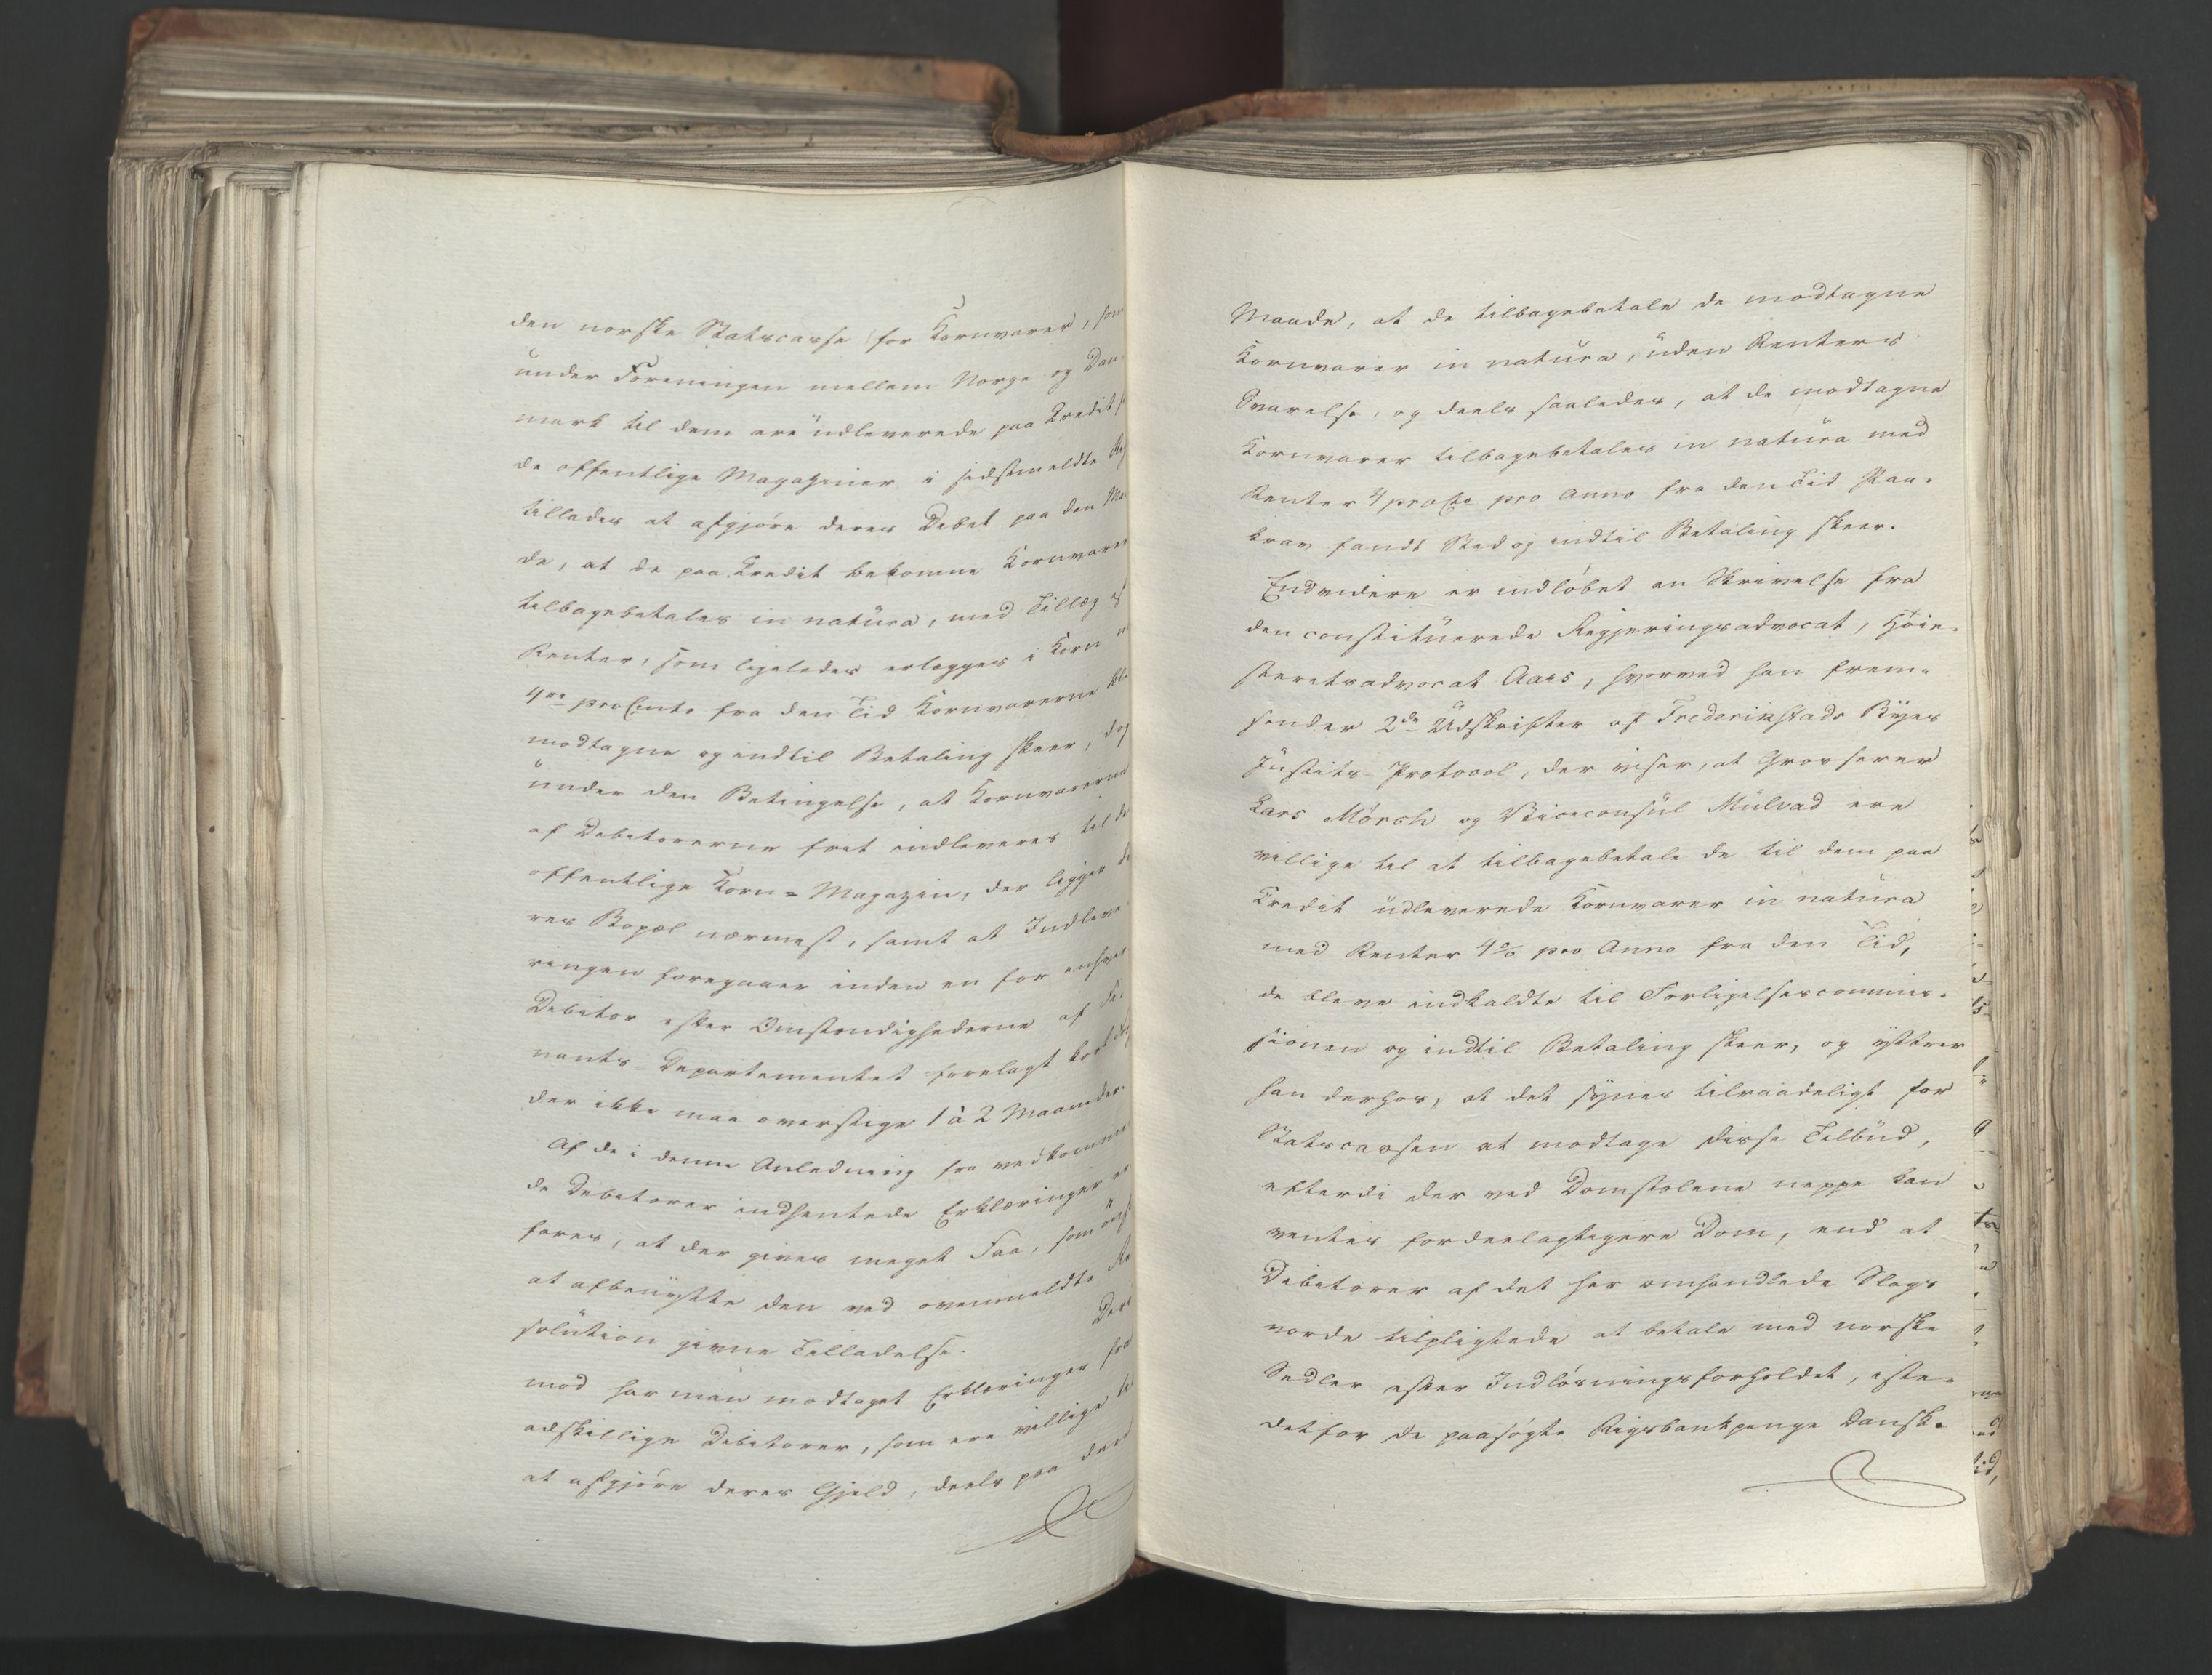 den norske Statscasse for Kornvarer, som
under Foreningen mellem Norge og Dan-
mark til dem ere udleverede paa Credit
de offentlige Magaziner i sidstmeldte
tillades at afgjøre deres Debet paa den
de, at de paa Credit bekomne Kornvarer
tilbagebetales in natura, med Tillæg af
Renter, som ligeledes erlægges i Korn
4re proCento fra den Tid Kornvarerne
modtagne og indtil Betaling skeer, dog
under den Betingelse, at Kornvarerne
af Debitorerne frit indleveres til
offentlige Korn-Magazin, der ligger
res Bopæl nærmest, samt at Indleve
ringen foregaaer inden en for enhver
Debitor efter Omstændighederne af Fi-
nants-Departementet forelagt kort
der ikke maa overstige 1 à 2 Maaneder.
Af de i denne Anledning fra vedkommen
de Debitorer indhentede Erklæringer er
fares, at der gives meget Faa, som
at afbenytte den ved ovenmeldte Re
solution givne Tilladelse. Der
mod har man modtaget Erklæringer fra
adskillige Debitorer, som ere villige til
at afgjøre deres Gjeld, deels paa den
Maade, at de tilbagebetale de modtagne
Kornvarer in natura, uden Renters
Svarelse, og deels saaledes, at de modtagne
Kornvarer tilbagebetales in natura med
Renter 4 proCto pro Anno fra den Tid Paa-
krav fandt Sted og indtil Betaling skeer.
Endvidere er indløbet en Skrivelse fra
den constituerede Regjeringsadvocat, Høie-
steretsadvocat Aars, hvorved han frem-
sender 2de Udskrifter af Frederikstads Byes
Justits-Protocol, der viser, at Grosserer
Lars Mørch og Viceconsul Mulvad ere
villige til at tilbagebetale de til dem paa
Credit udleverede Kornvarer in natura
med Renter 4% pro Anno fra den Tid,
de bleve indkaldte til Forligelsescommis-
sionen og indtil Betaling skeer, og yttrer
han derhos, at det synes tilraadeligt for
Statscassen at modtage disse Tilbud,
efterdi der ved Domstolene neppe kan
ventes fordeelagtigere Dom, end at
Debitorer af det her omhandlede Slags
vorde tilpligtede at betale med norske
Sedler efter Indløsningsforholdet, iste-
detfor de paasøgte Rigsbankpenge Dansk.